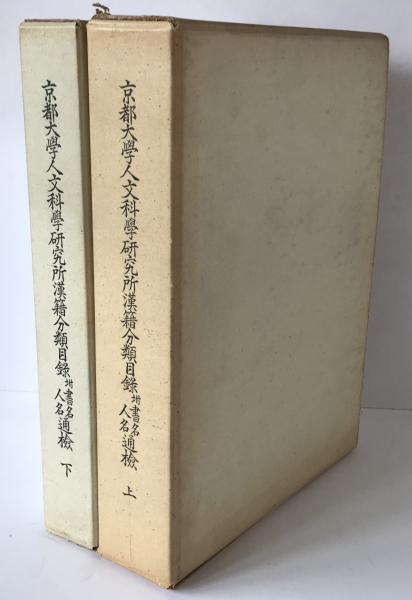 京都大學人文科學研究所漢籍分類目録 坿書名人名通檢 上
京都大學人文科學研究所漢籍分類目録 坿書名人名通檢 下